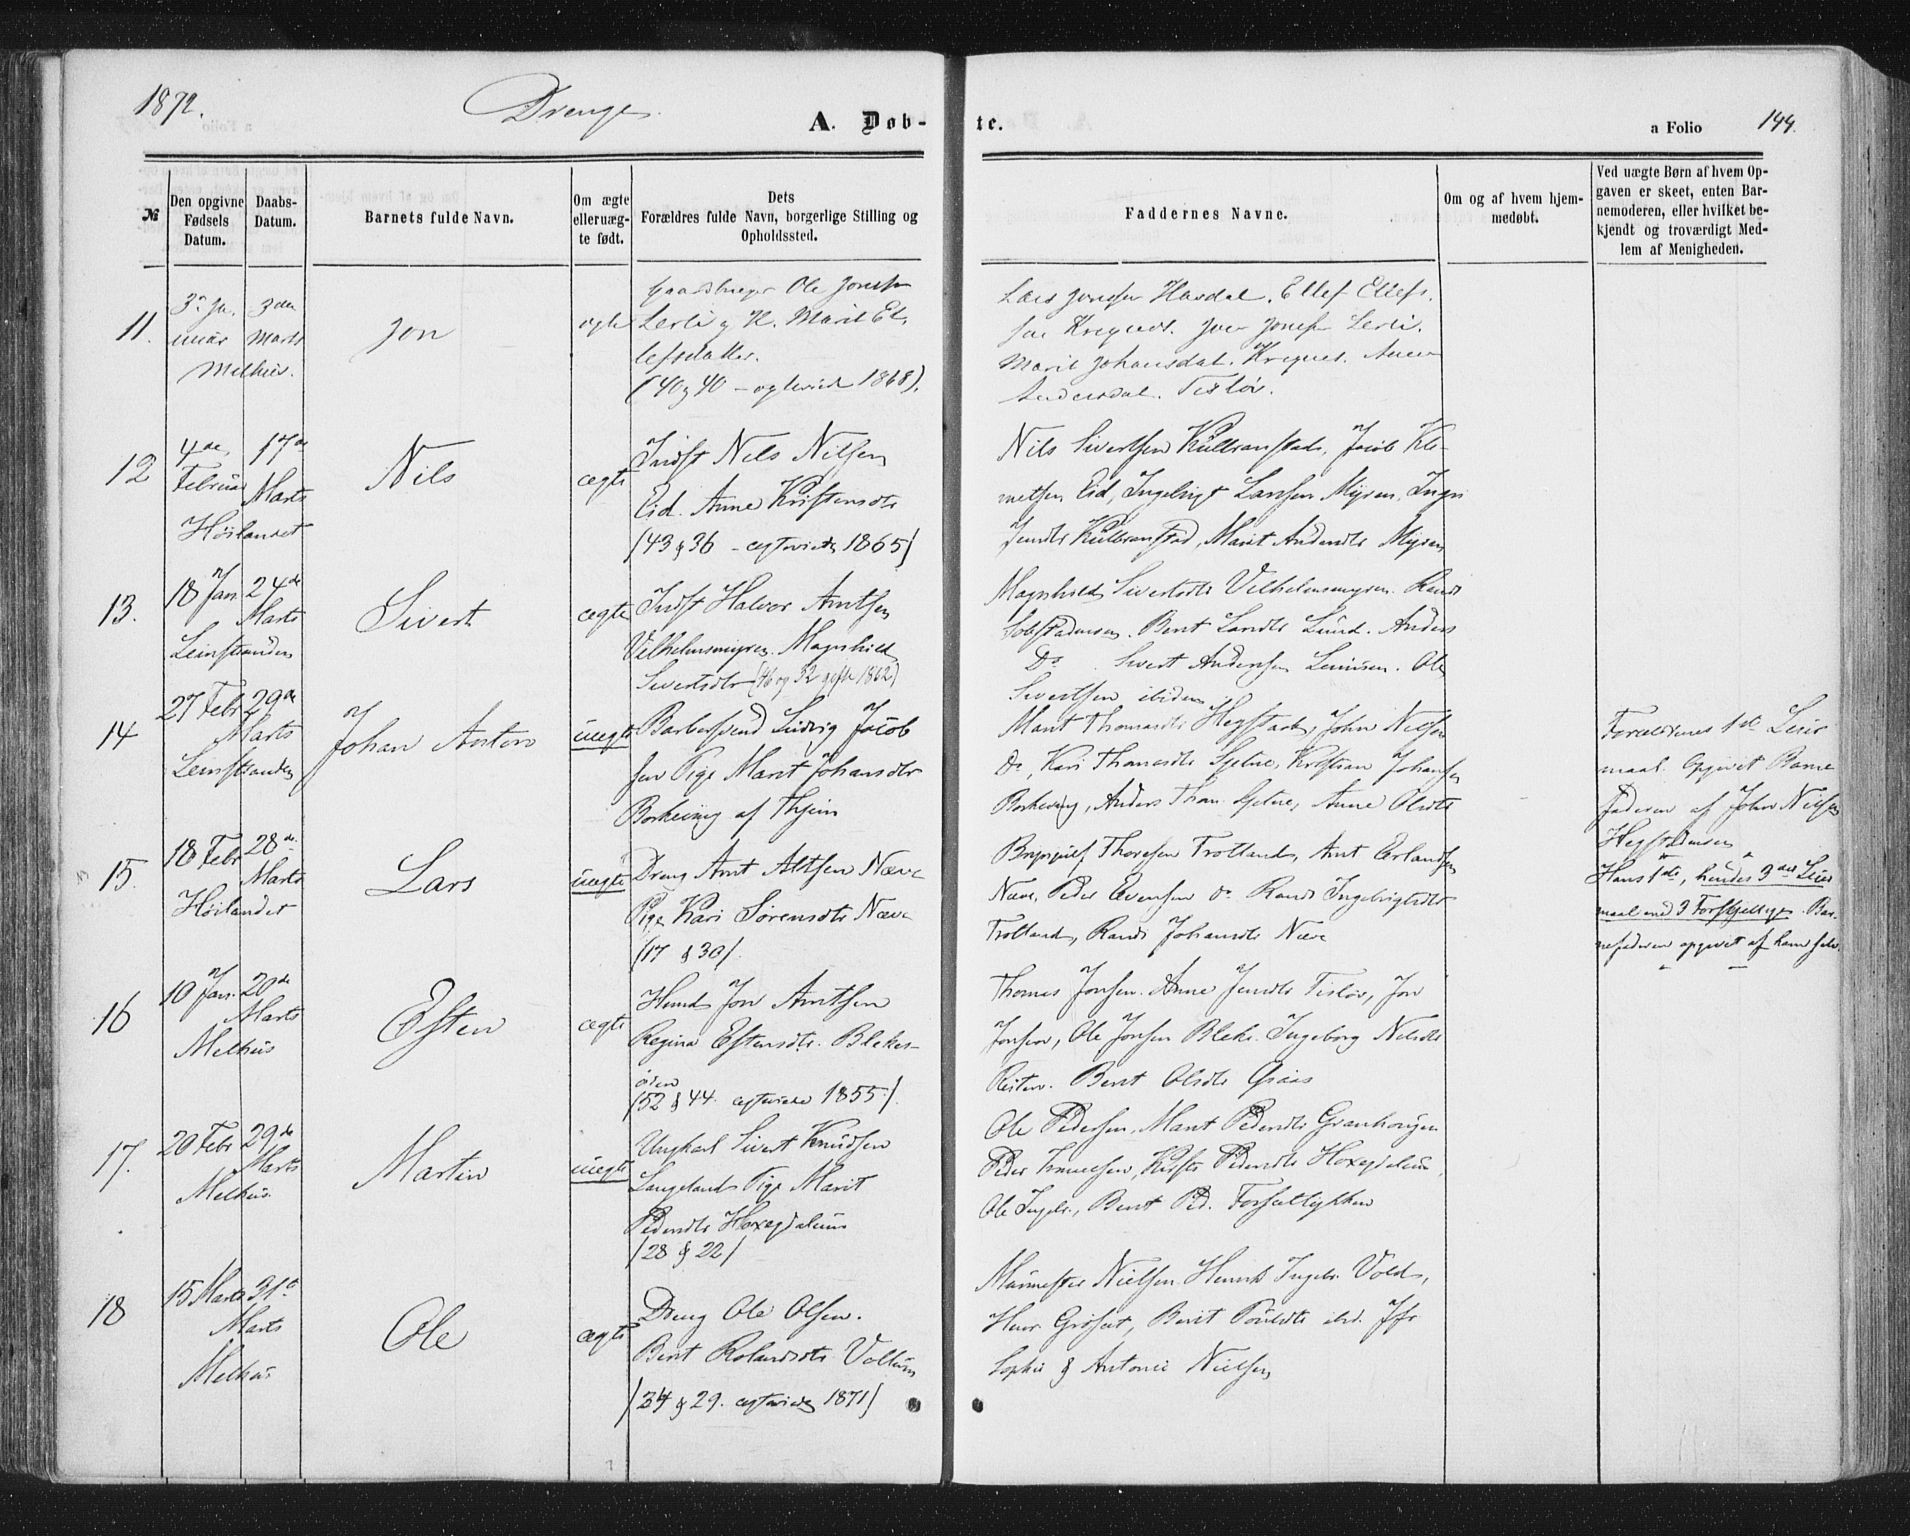 1872. Drenge. A. Døb-
te. a Folio 144.
№
Den opgivne Fødsels Datum.
Daabs-Datum.
Barnets fulde Navn.
Om ægte elleruæg-te født.
Dets Forældres fulde Navn, borgerlige Stilling og Opholdssted.
Faddernes Navne.
Om og af hvem hjem-medøbt.
Ved uægte Børn af hvem Op-gaven er skeet, enten Bar-nemoderen, eller hvilket be-kjendt og troværdigt Med-lem af Menigheden.
11.
3. Ja-
nuar
3den
Marts
Melhus.
Jon
ægte
Gaardbruger Ole Jonsen
Lerli og K. Marit El-
lefsdatter.
(40 og 40 – ægteviet 1868).
Lars Jonsen Havdal. Ellef Ellef-
sen Kregnes. Jon Jonsen Lerli.
Marit Johansdat. Kregnes. Anne
Andersdat. Tisløv.
12
4de
Februar
17de
Marts
Høilandet
Nils
ægte
Indst Nels Nilsen
Eid. Anne Kristensdtr
(43 & 36 – ægteviede 1865)
Nils Sivertsen Kulbranstad, Jacob Kle-
metsen Eid, Ingebrigt Larssen Myren, Ingri
Jensdtr Kulbranstad, Marit Andersdtr Myren
13.
18 Jan.
24de
Marts
Leinstranden
Sivert
ægte
Indst Halvor Arntsen
Vilhelmsmyren. Magnhild
Sivertsdtr (46 og 32 gifte 1862)
Magnhild Sivertsdtr Vilhelmsmyren. Randi
. Berit Lund. Anders
Do . Sivert Andersen . Ole
Sivertsen ibidem
14
27 Febr
29de
Marts
Leinstranden
Johan Anton
uægte
Barbersvend Ludvig Jacob
sen Pige Marit Johansdtr
af
Marit Thomasdtr Hegstad, John Nilsen
Do, Kari Thomasdtr Spetne, Kristian Johansen
, Anders Thom. Spetne, Anne Olsdtr
Forældrenes 1ste Leier
maal. Opgivet Barne
faderen af John Nilsen
15.
18 Febr
28de
Marts
Høilandet
Lars
uægte
Dreng Arnt Næve
Pige Kari Sørensdtr Næve
(17 & 30).
Brynjulf Thoresen Trotland, Arnt Erlandsen
Næve, Peder Evensen do. Randi Ingebrigtsdtr
Trotland, Randi Johansdtr Næve
Hans 1ste, hendes 3die Leier
maal med 3 Forskjellige. Bar-
nefaderen opgivet af ham selv.
16
10 Jan.
20de
Marts
Melhus
Esten
ægte
Husmd Jon Arntsen
Regina Estensdtr. Blekes-
øien
(52 & 44. ægteviede 1855).
Thomas Jonsen. Anne Jensdtr Tisløv, Jon
Jonsen, Ole Jonsen Bleke. Ingeborg Nilsdtr
. Berit Olsdtr Graas
17.
20 Febr
29de
Marts
Melhus
Martin
uægte
Ungkarl Sivert Knudsen
Langeland Pige Marit
Pedersdtr
(28 & 22)
Ole Pedersen, Marit Pedersdtr Granhougen
Peder , Pedersdtr
Ole Ingebr., Berit Ped.
18
15 Marts
31te
Marts
Melhus
Ole
ægte
Dreng Ole Olsen.
Berit Rolandsdtr Vollum
(34 & 29. ægteviede 1871)
Nielsen Henrik Ingebr. Vold,
, Berit ibid. Jfr
Sophie & Antonie Nielsen